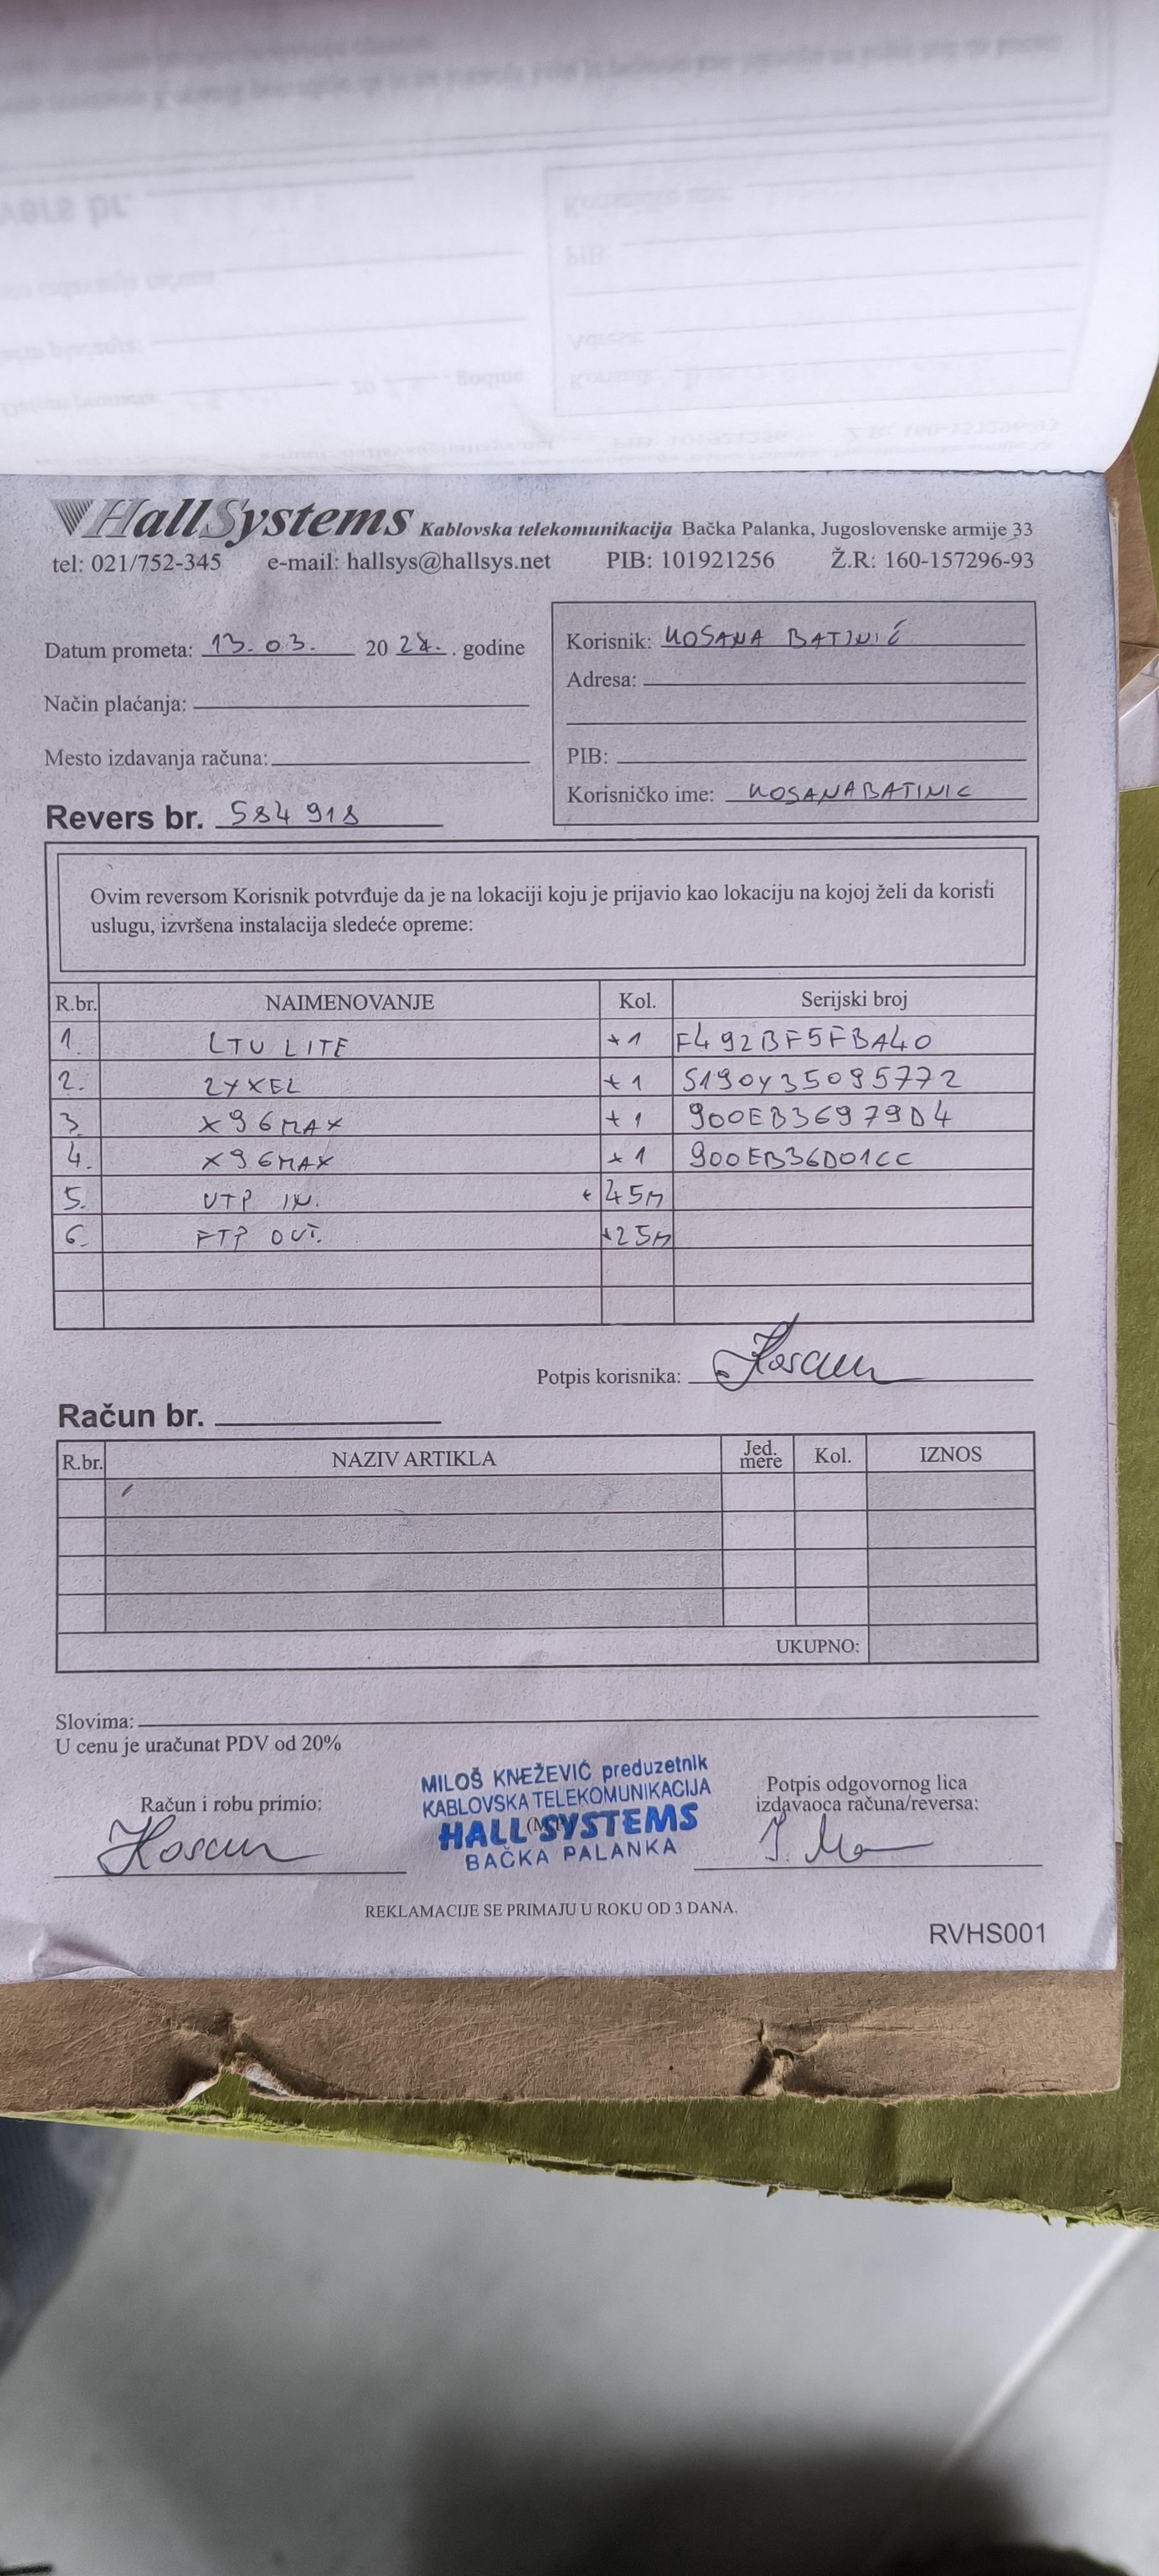 HallSystems Kablovska telekomunikacija Bačka Palanka, Jugoslovenske armije 33
tel: 021/752-345 e-mail: hallsys@hallsys.net PIB: 101921256 Ž.R: 160-157296-93
Datum prometa: 13.03. 20 24. . godine
Način plaćanja:
Mesto izdavanja računa:
Revers br. 584918
Korisnik: KOSANA BATINIĆ
Adresa:
PIB:
Korisničko ime: KOSANABATINIC
Ovim reversom Korisnik potvrđuje da je na lokaciji koju je prijavio kao lokaciju na kojoj želi da koristi
uslugu, izvršena instalacija sledeće opreme:
R.br. NAIMENOVANJE Kol. Serijski broj
1. LTU LITE *1 F492BF5FBA40
2. ZYXEL *1 S190Y35095772
3. X96MAX *1 900EB36979D4
4. X96MAX *1 900EB36D01CC
5. UTP IN. *45M
6. FTP OUT. *25M
Potpis korisnika: Kosana
Račun br.
R.br. NAZIV ARTIKLA Jed. mere Kol. IZNOS
UKUPNO:
Slovima:
U cenu je uračunat PDV od 20%
Račun i robu primio:
Kosana
MILOŠ KNEŽEVIĆ preduzetnik
KABLOVSKA TELEKOMUNIKACIJA
HALL SYSTEMS
BAČKA PALANKA
Potpis odgovornog lica
izdavaoca računa/reversa:
REKLAMACIJE SE PRIMAJU U ROKU OD 3 DANA.
RVHS001